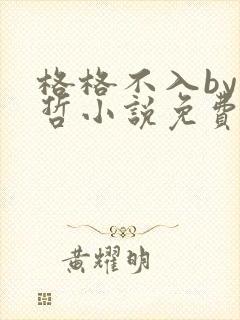 格格不入by
哲小説免費
黃耀明